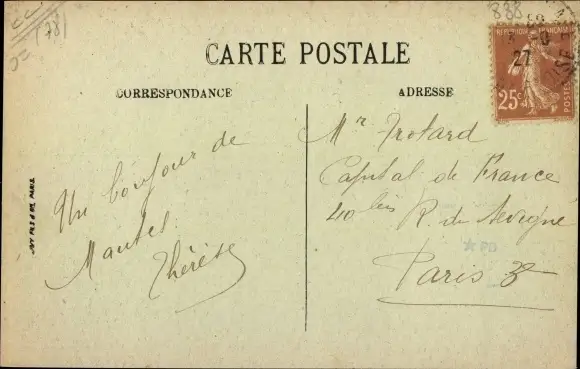 (78)
888
CARTE POSTALE
CORRESPONDANCE
ADRESSE
REPUBLIQUE FRANÇAISE
25c
POSTES
27
OISE
Un bonjour de
Mantes
Thérèse
Mr Trotard
Capital de France
40 bis R. de Sévigné
Paris 3e
PD
PARIS.